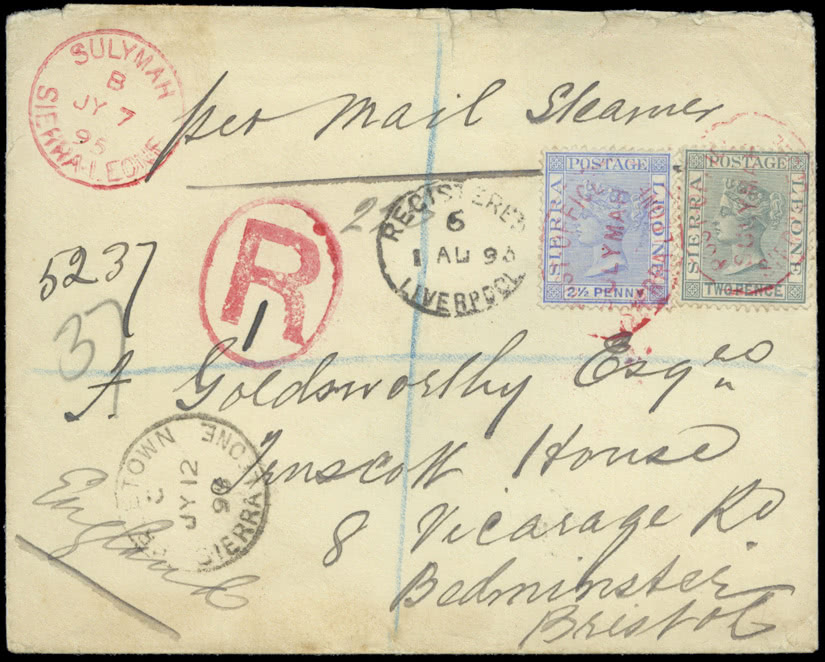 SULYMAH
B
JY 7
95
SIERRA-LEONE
per Mail Steamer
SIERRA
POSTAGE
LEONE
2½ PENNY
SIERRA
POSTAGE
LEONE
TWO PENCE
REGISTERED
6
1 AU 95
LIVERPOOL
R
1
5237
37
A Goldsworthy Esqre
House
8 Vicarage Rd
Bedminster
Bristol
England
JY 12
SIERRA LEONE